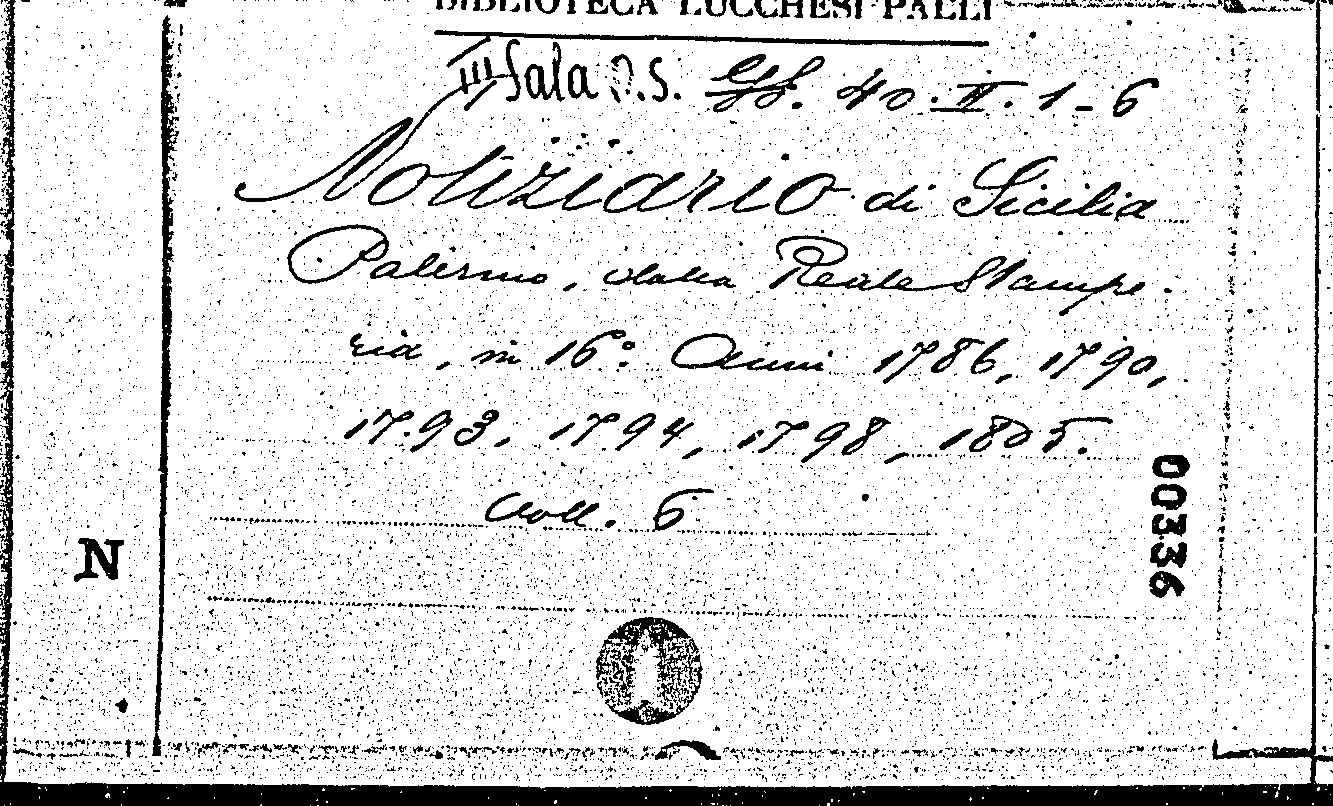 BIBLIOTECA LUCCHESI PALLI
III Sala D.S. 40. II. 1-6
Notiziario di Sicilia
Palermo, dalla Reale Stampe-
ria, in 16º. Anni 1786, 1790,
1793, 1794, 1798, 1805.
Voll. 6
N
00336